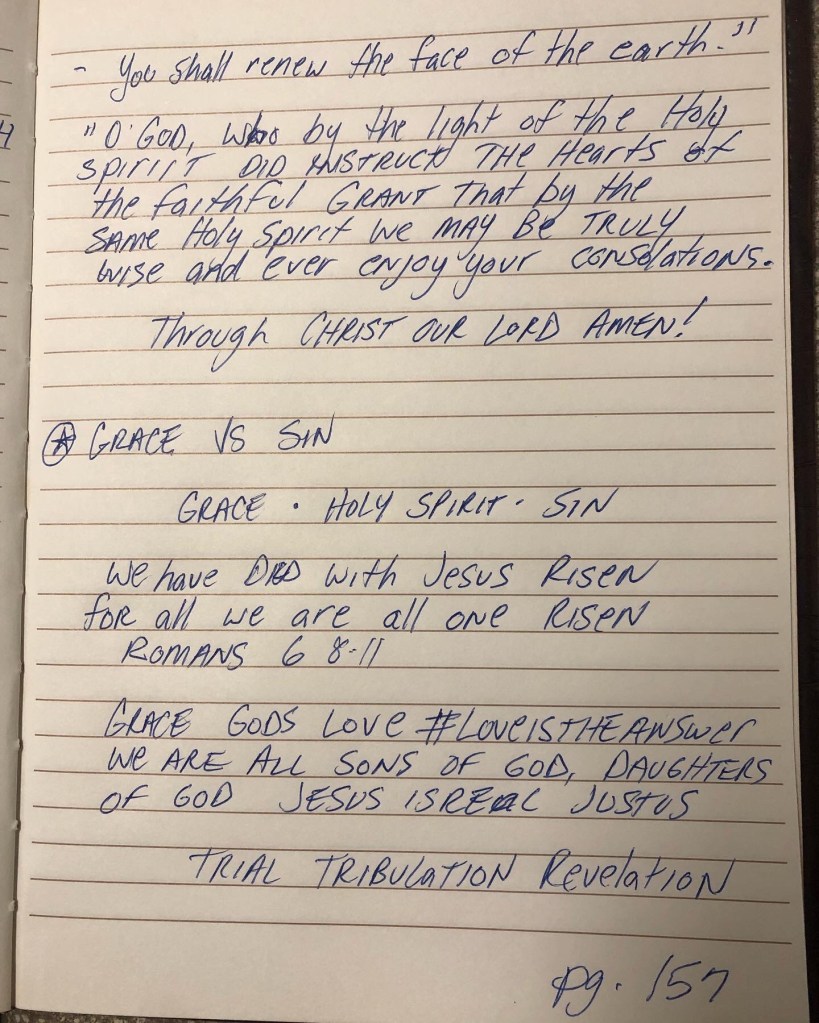 - You shall renew the face of the earth."
"O' GOD, who by the light of the Holy
spiriiT DID INSTRUCT THE Hearts of
the faithful GRANT That by the
SAME Holy Spirit we MAY Be TRULY
wise and ever enjoy your consolations.
Through CHRIST OUR LORD AMEN!
GRACE VS SIN
GRACE · HOLY SPIRIT · SIN
We have DIED with Jesus RISEN
for all we are all one RISEN
ROMANS 6 8-11
GRACE GODS LOVE #LOVEISTHEANSWER
WE ARE ALL SONS OF GOD, DAUGHTERS
OF GOD JESUS ISREAL JUSTUS
TRIAL TRIBULATION Revelation
pg. 157